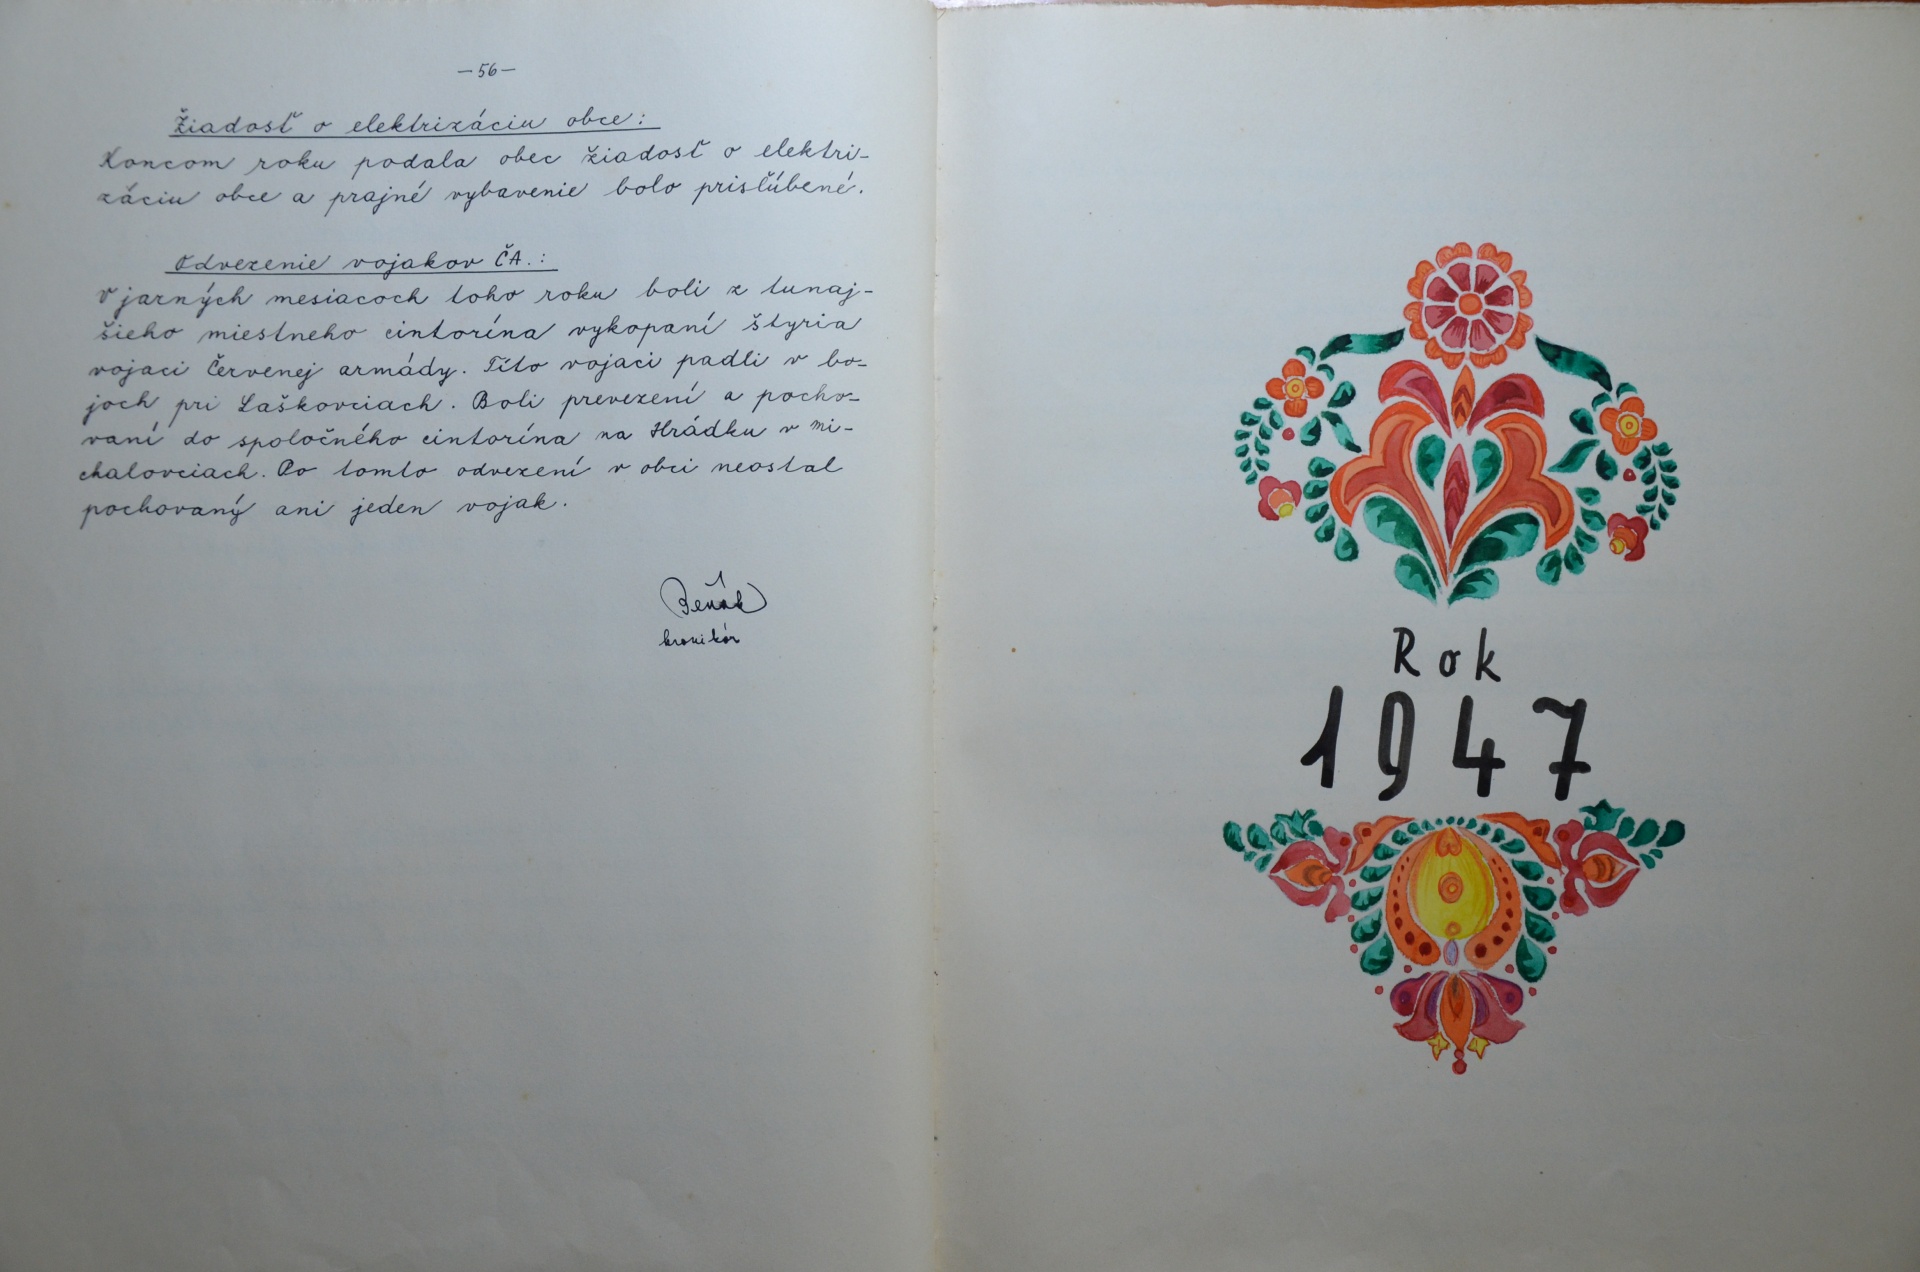 —56—
Žiadosť o elektrizáciu obce:
Koncom roku podala obec žiadosť o elektri-
záciu obce a prajné vybavenie bolo prisľúbené.
Odvezenie vojakov ČA.:
V jarných mesiacoch toho roku boli z tunaj-
šieho miestneho cintorína vykopaní štyria
vojaci Červenej armády. Títo vojaci padli v bo-
joch pri Laškovciach. Boli prevezení a pocho-
vaní do spoločného cintorína na Hrádku v Mi-
chalovciach. Po tomto odvezení v obci neostal
pochovaný ani jeden vojak.
kronikár
Rok
1947